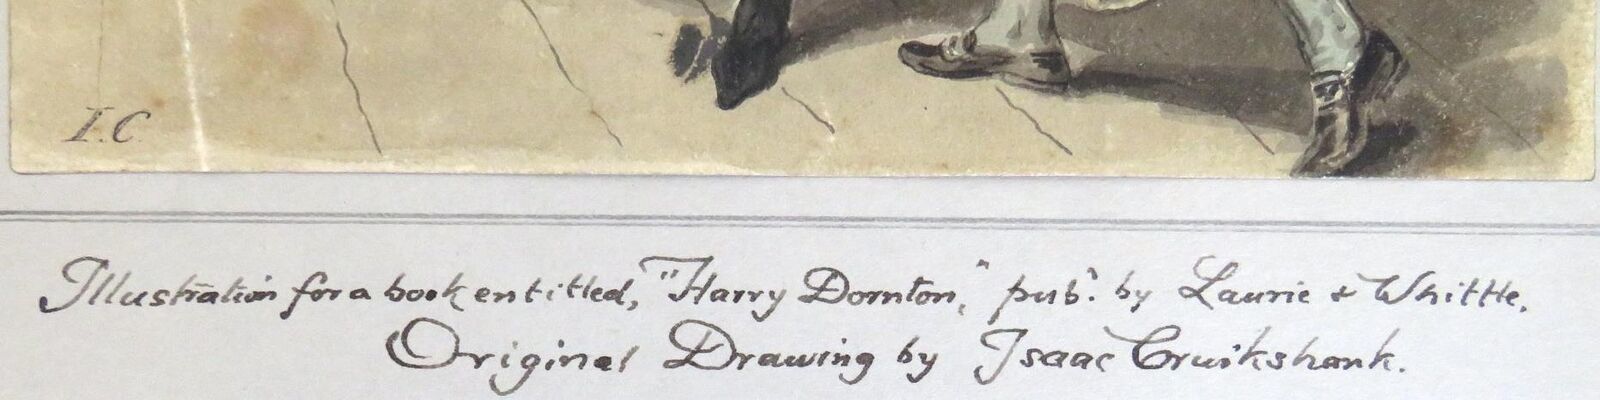 I.C
Illustration for a book entitled, "Harry Dornton," pub. by Laurie & Whittle.
Original Drawing by Isaac Cruikshank.